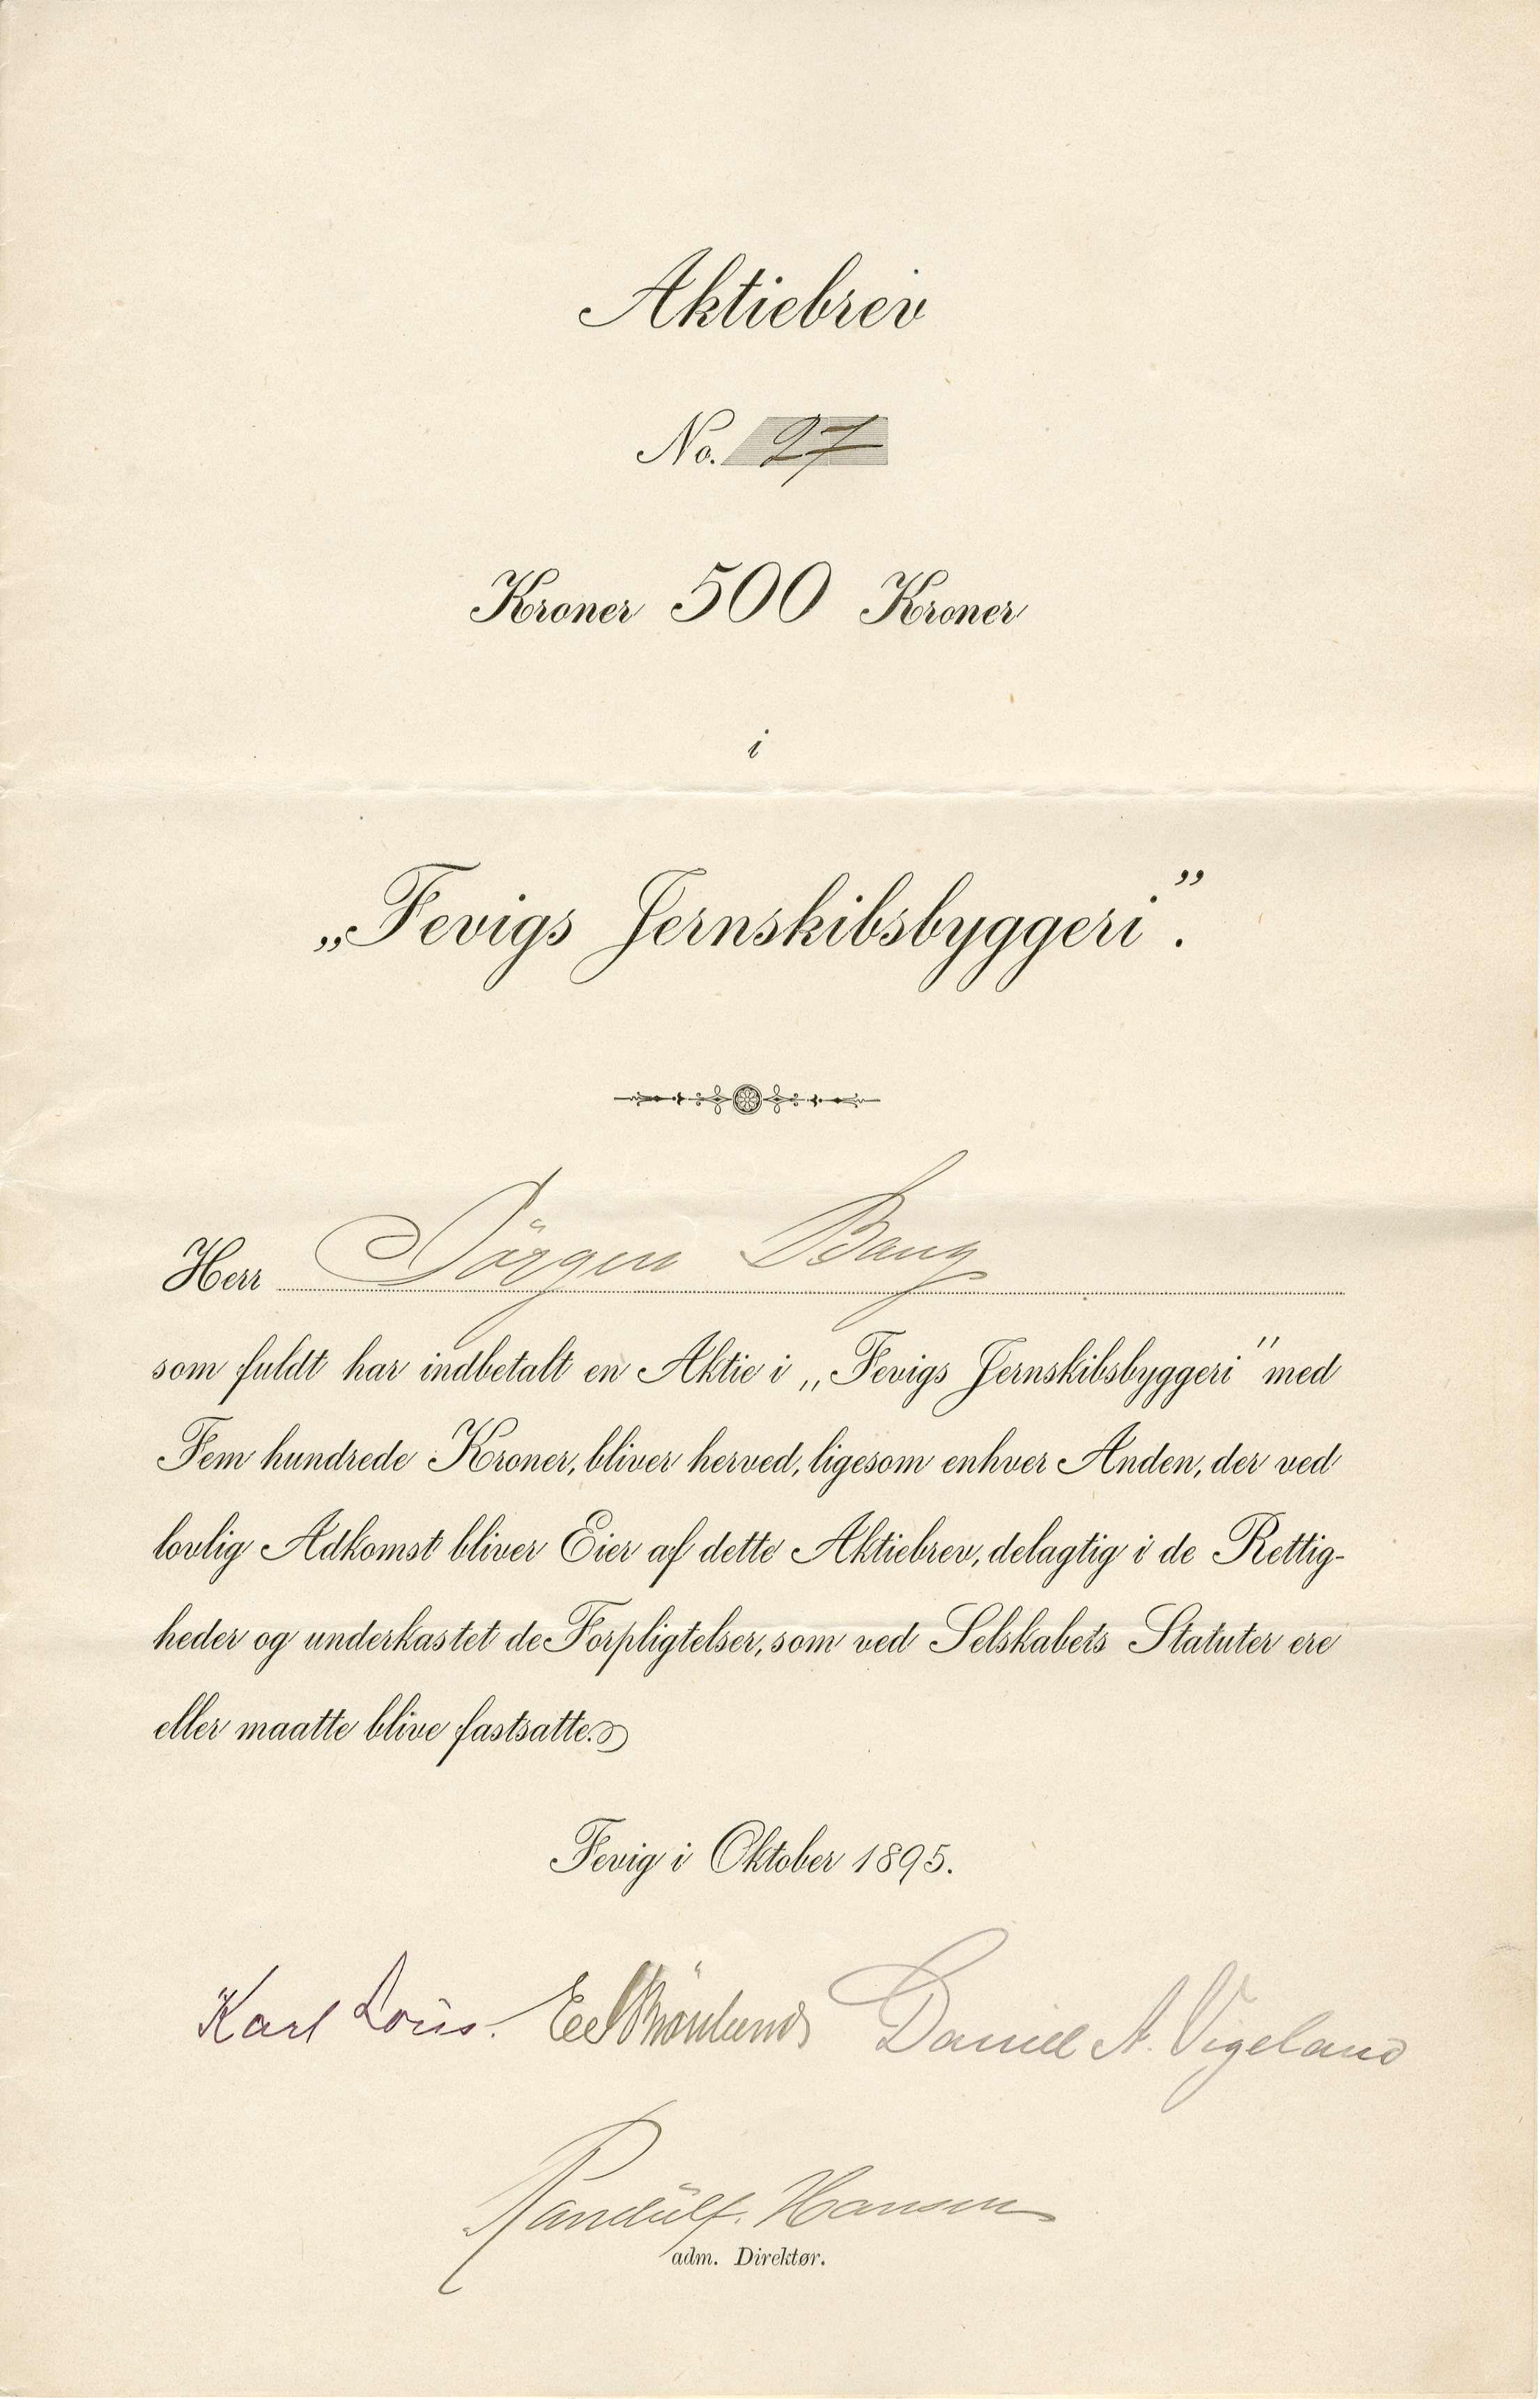 Aktiebrev
No. 27
Kroner 500 Kroner
i
„Fevigs Jernskibsbyggeri”.
Herr Jörgen Bang
som fuldt har indbetalt en Aktie i „Fevigs Jernskibsbyggeri” med
Fem hundrede Kroner, bliver herved, ligesom enhver Anden, der ved
lovlig Adkomst bliver Eier af dette Aktiebrev, delagtig i de Rettig-
heder og underkastet de Forpligtelser, som ved Selskabets Statuter ere
eller maatte blive fastsatte.
Fevig i Oktober 1895.
Karl Daniel A. Vigeland
Randulf. Hansen
adm. Direktør.